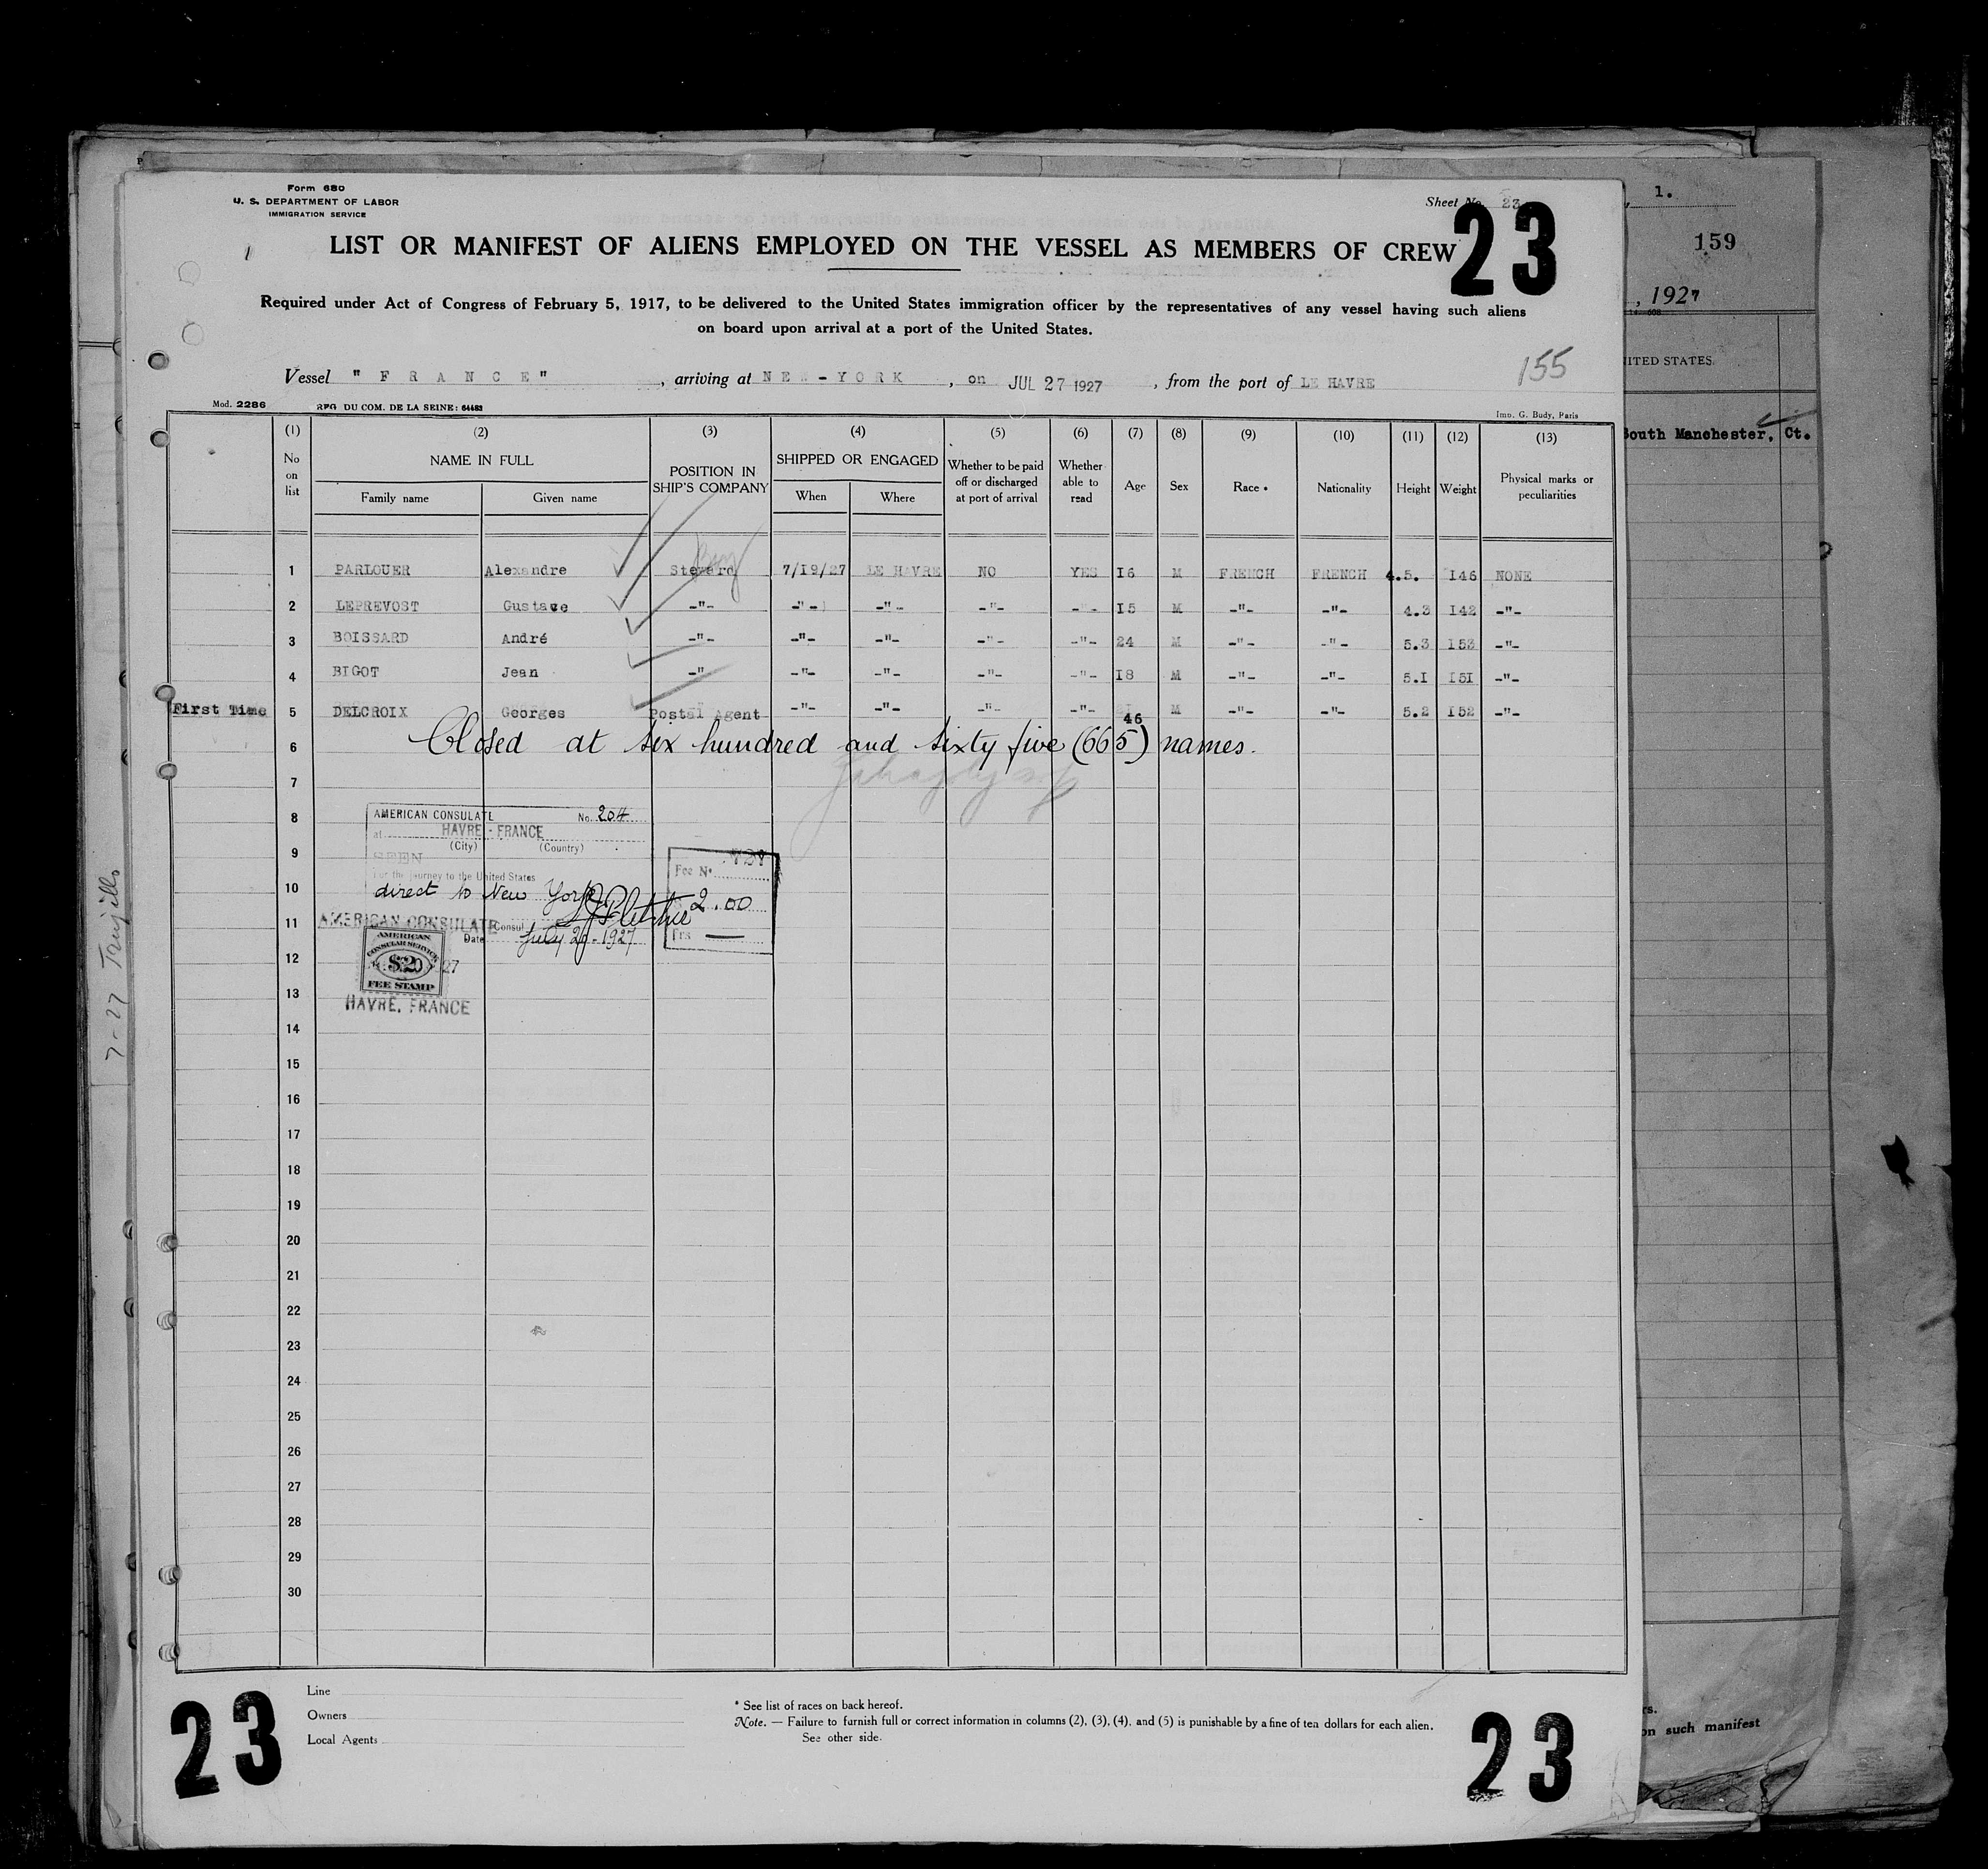 Form 680
U. S. DEPARTMENT OF LABOR
IMMIGRATION SERVICE
Sheet No. 23
23
1.
159
, 1927
LIST OR MANIFEST OF ALIENS EMPLOYED ON THE VESSEL AS MEMBERS OF CREW
Required under Act of Congress of February 5, 1917, to be delivered to the United States immigration officer by the representatives of any vessel having such aliens
on board upon arrival at a port of the United States.
155
ITED STATES
Vessel " F R A N C E " , arriving at NEW-YORK , on JUL 27 1927 , from the port of LE HAVRE
Mod. 2286 RFG DU COM. DE LA SEINE: 64483 Imp. G. Budy, Paris
South Manchester, Ct.
(1) (2) (3) (4) (5) (6) (7) (8) (9) (10) (11) (12) (13)
No on list NAME IN FULL POSITION IN SHIP'S COMPANY SHIPPED OR ENGAGED Whether to be paid off or discharged at port of arrival Whether able to read Age Sex Race * Nationality Height Weight Physical marks or peculiarities
Family name Given name When Where
Boy
1 PARLOUER Alexandre Steward 7/19/27 LE HAVRE NO YES 16 M FRENCH FRENCH 4.5. 146 NONE
2 LEPREVOST Gustave -"- -"- -"- -"- -"- 15 M -"- -"- 4.3 142 -"-
3 BOISSARD André -"- -"- -"- -"- -"- 24 M -"- -"- 5.3 153 -"-
4 BIGOT Jean -" -"- -"- -"- -"- 18 M -"- -"- 5.1 151 -"-
First Time 5 DELCROIX Georges Postal Agent -"- -"- -"- -"- 46 M -"- -"- 5.2 152 -"-
6 Closed at six hundred and sixty five (665) names.
7
8 AMERICAN CONSULATE No. 204
at HAVRE - FRANCE
(City) (Country)
9 SEEN
For the journey to the United States
10 direct to New York
Fee No.
2.00
11 AMERICAN CONSULATE Consul
Date July 20-1927
frs —
AMERICAN
CONSULAR SERVICE
12 $2 27
FEE STAMP
13
HAVRE, FRANCE
14
15
16
17
18
19
20
21
22
23
24
25
26
27
28
29
30
7-27
Line
Owners
Local Agents
* See list of races on back hereof.
Note. — Failure to furnish full or correct information in columns (2), (3), (4), and (5) is punishable by a fine of ten dollars for each alien.
See other side.
rs.
on such manifest
23
23